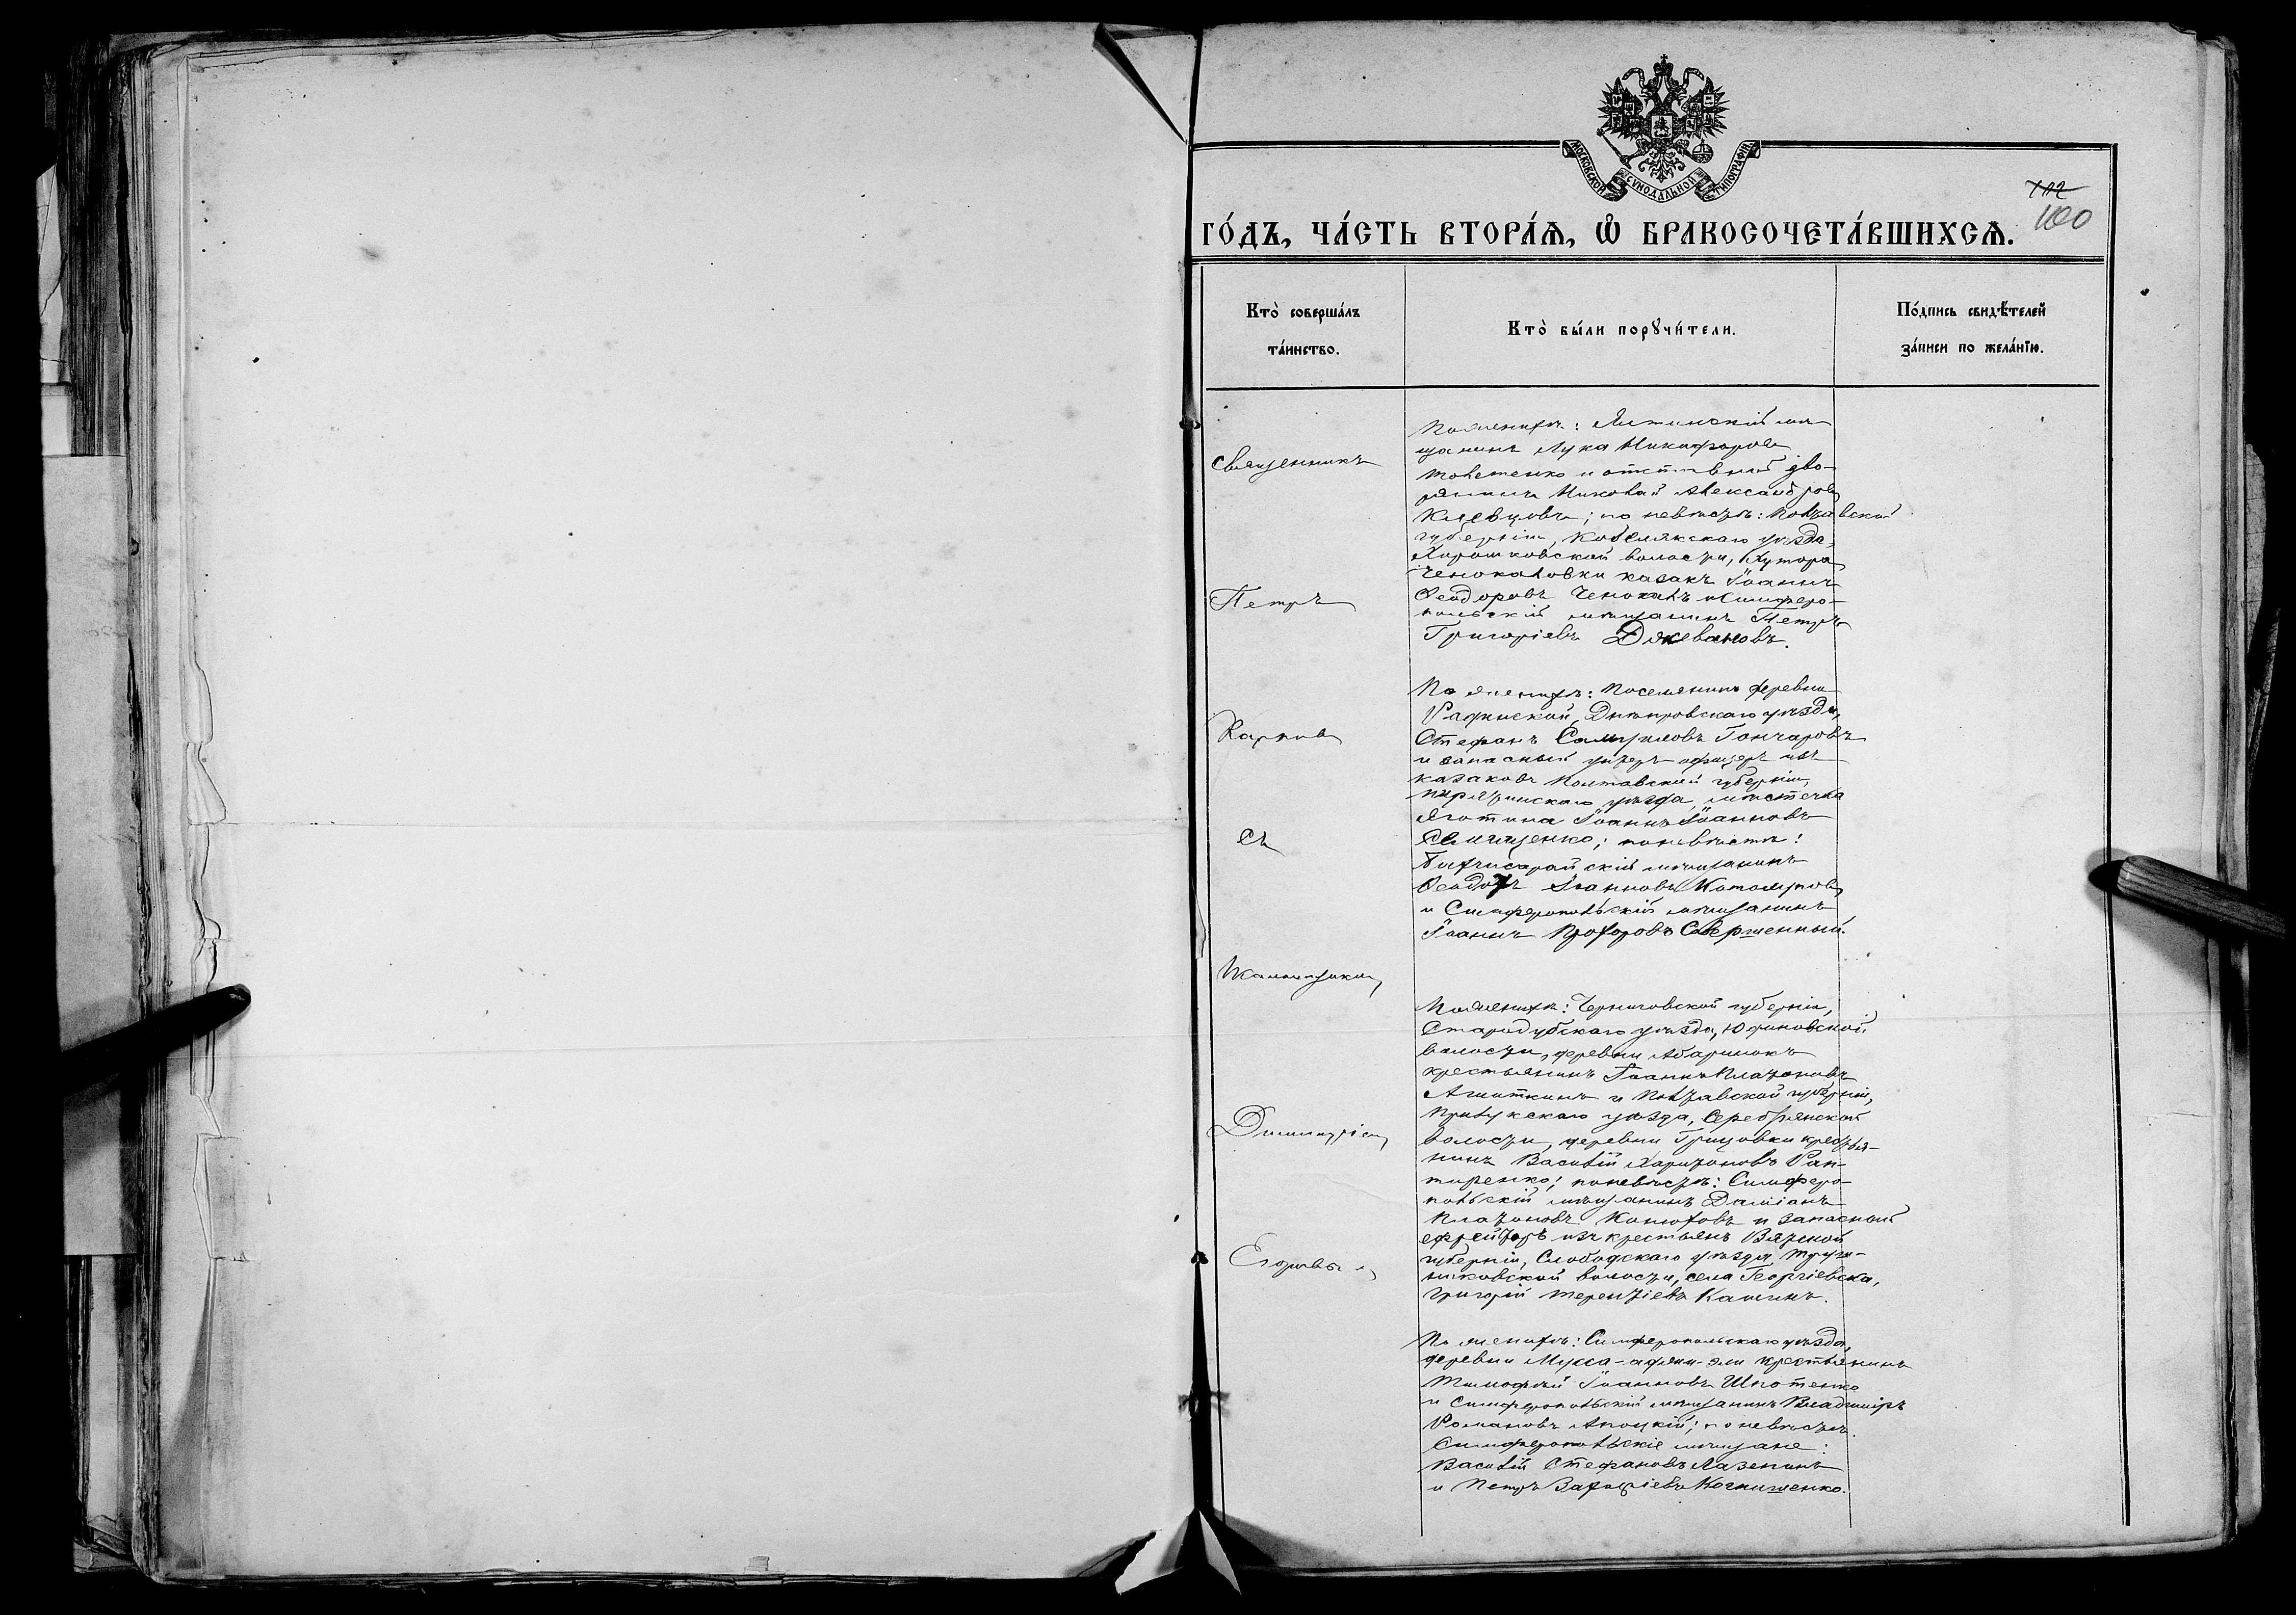 МОСКОВСКОЙ СѴНОДАЛЬНОЙ ТИПОГРАФІИ
102
100
ГО́ДЪ, ЧА́СТЬ ВТОРА́Ѧ, Ѡ БРАКОСОЧЕТА́ВШИХСѦ.
Кто̀ соверша́лъ
та́инство.
Кто̀ бы́ли порꙋчи́тели.
По́дпись свидѣ́телей
за́писи по жела́нїю.
Священникъ
Петръ
Карпов
съ
Діаконом
Димитріем
Егоровым
По женихѣ: Ялтинскій мѣ-
щанинъ Лука Никифоров
и отставной дво-
рянинъ Николай Александров
по невѣстѣ: Полтавской
губерніи, Кобелякскаго уѣзда,
волости, хутора
Ченокаловки казакъ Іоаннъ
Ѳеодоровъ Ченокалъ и Симферо-
польскій мѣщанинъ Петръ
Григоріевъ Джевановъ.
По женихѣ: Поселянинъ деревни
Днѣпровскаго уѣзда,
Стефанъ Самуиловъ Гончаровъ
и запасный унтеръ-офицеръ изъ
казаковъ Полтавской губерніи,
Пирятинскаго уѣзда, мѣстечка
Яготина Іоаннъ Іоанновъ
по невѣстѣ:
Бахчисарайскій мѣщанинъ
Ѳеодоръ Іоанновъ
и Симферопольскій мѣщанинъ
Іоаннъ Прохоровъ Совершенный.
По женихѣ: Черниговской губерніи,
Стародубскаго уѣзда, Юдиновской
волости, деревни
крестьянинъ Іоаннъ Платоновъ
и Полтавской губерніи,
Прилукскаго уѣзда, Сребрянской
волости, деревни Грицовки крестья-
нинъ Василій Харитоновъ Ран-
таренко; по невѣстѣ: Симферо-
польскій мѣщанинъ Даміанъ
Платоновъ Конюховъ и запасный
ефрейторъ изъ крестьянъ Вятской
губерніи, Слободскаго уѣзда,
волости, села Георгіевска,
Григорій Терентіевъ
По женихѣ: Симферопольскаго уѣзда,
деревни Мусса-аджи-эли крестьянинъ
Тимофей Іоанновъ
и Симферопольскій мѣщанинъ Владиміръ
Романовъ по невѣстѣ:
Симферопольскіе мѣщане:
Василій Стефановъ Лазенинъ
и Петръ Захаріевъ